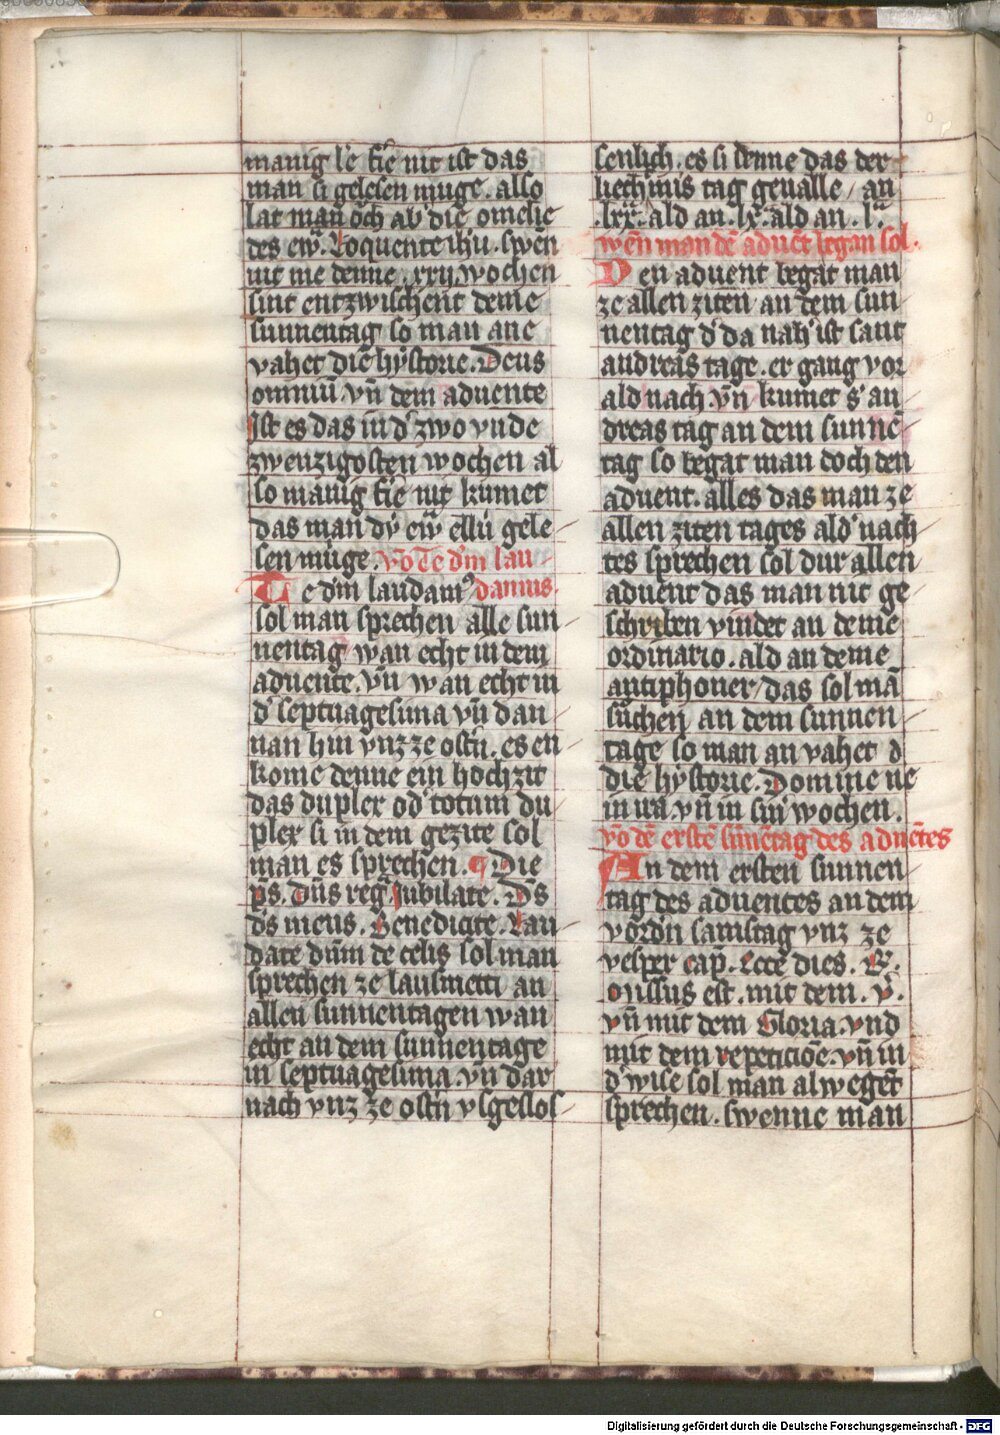 manig le fie nit ist das
man si gelesen muge. also
lat man och ab die omelie
des ew. Loquente ihu. swen
nit me denne. xxij. wochen
sint entzwischent deme
sunnentag so man ane
vahet die hystorie. Deus
omniu. vn dem aduente
Ist es das in d' zwo vnde
zwenzigosten wochen al
so manig fie nit kumet
das man dy ew ellu gele
sen muge. vo Te dm lau
Te dm laudam9 damus.
sol man sprechen alle sun
nentag wan echt in dem
aduente. vn wan echt in
d' septuagesima vn dan
nan hin vnz ze ostn. es en
kome denne ein hochzit
das dupler od' totum du
pler si in dem gezite sol
man es sprechen. ¶ Die
ps. Dns reg. Jubilate. Ds
ds meus. Benedicite. Lau
date dnm de celis sol man
sprechen ze lausmetti an
allen sunnentagen wan
echt an dem sunnentage
in septuagesima. vn dar
nach vnz ze ostn vsgeslos
senlich. es si denne das der
liechmis tag geualle / an
.lxx. ald an .lx. ald an .l.
wen man de aduet began sol.
Den aduent begat man
ze allen ziten an dem sun
nentag d' da nah ist sant
andreas tage. er gang vor
ald nach vn kumet s' an
dreas tag an dem sunne
tag so begat man doch den
aduent. alles das man ze
allen ziten tages ald' nach
tes sprechen sol dur allen
aduent das man nit ge
schriben vindet an deme
ordinario. ald an deme
antiphoner / das sol ma
suchen an dem sunnen
tage so man an vahet d
die hystorie. Domine ne
in ira. vn in sin wochen.
vo de erste sunetag des aduetes
An dem ersten sunnen
tag des aduentes an dem
vordn samstag vnz ze
vesper cap. Ecce dies. R.
Missus est. mit dem. v.
vn mit dem Gloria. vnd
mit dem repeticioe. vn in
d' wise sol man alweget
sprechen. swenne man
Digitalisierung gefördert durch die Deutsche Forschungsgemeinschaft - DFG